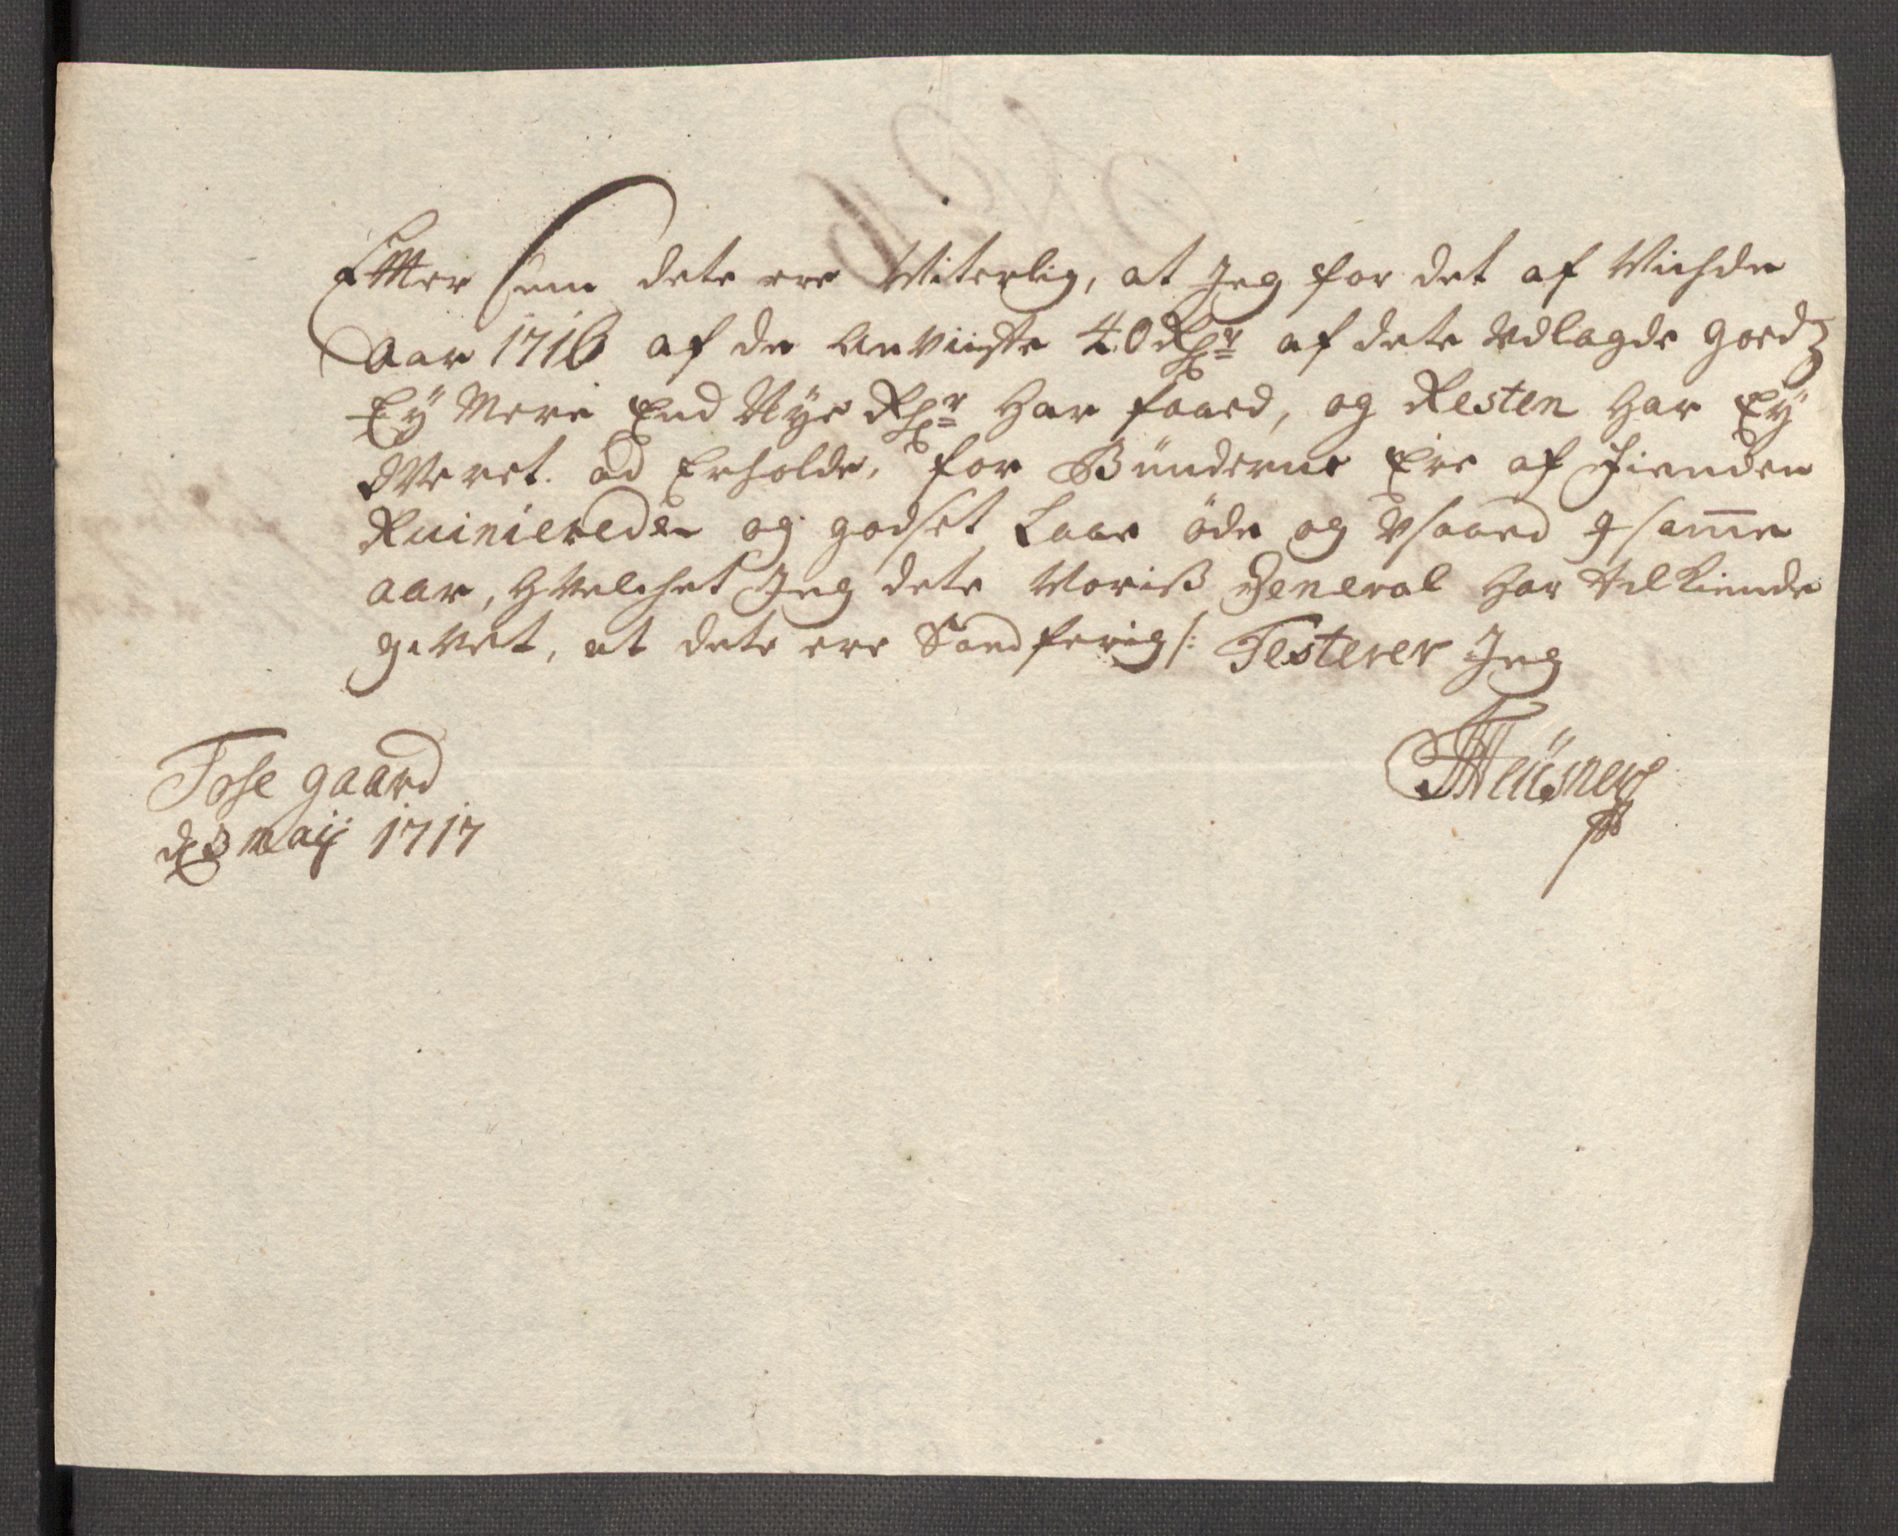 Efftter som dete ere Viterlig, at Jeg for det af Vichde
Aar 1716 af de Anviiste 40 Rdr af dete Udlagde goedz
Ey Mere End Nye Rdr har faaed, og Resten har Ey
Veret ad Erholde, for Bünderne Ere af Fienden
Ruinierede og godset Laae öde og Usaaed samme
aar, Hvelchet Jeg dete Voriß General har tilkiende
givet, at dete ere Sandferig /: Testerer Jeg
Tose gaard
d 3 maij 1717